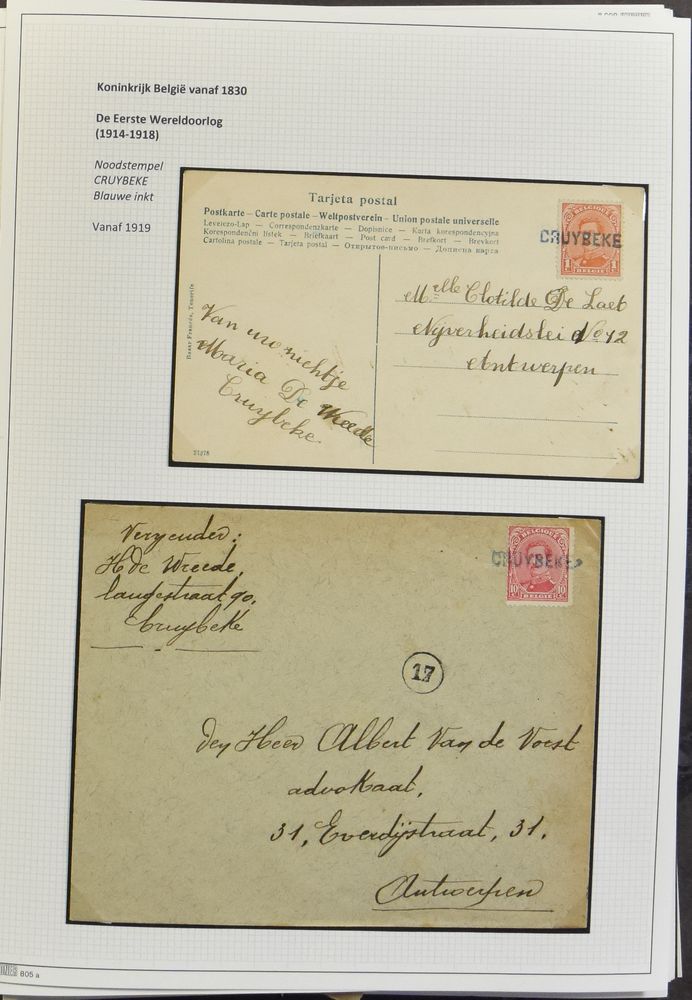 Koninkrijk België vanaf 1830
De Eerste Wereldoorlog
(1914-1918)
Noodstempel
CRUYBEKE
Blauwe inkt
Vanaf 1919
Tarjeta postal
Postkarte – Carte postale – Weltpostverein – Union postale universelle
Levelezo-Lap — Correspondenzkarte — Dopisnice — Karta korespondencyjna
Korespondenčni listek — Briefkaart — Post card — Brefkort — Brevkort
Cartolina postale — Tarjeta postal — Открытое письмо — Дописна карта
BELGIQUE
CRUYBEKE
1 1
BELGIE
Melle Clotilde De Laet
Nijverheidslei No 12
Antwerpen
Van uw nichtje
Maria De Wreede
Cruybeke
Tenerife
BELGIQUE
CRUYBEKE
10 10
BELGIE
Verzender:
H de Wreede,
Langestraat 90,
Cruybeke
17
den Heer Albert Van de Vorst
advokaat,
31, Everdijstraat, 31.
Antwerpen
805 a